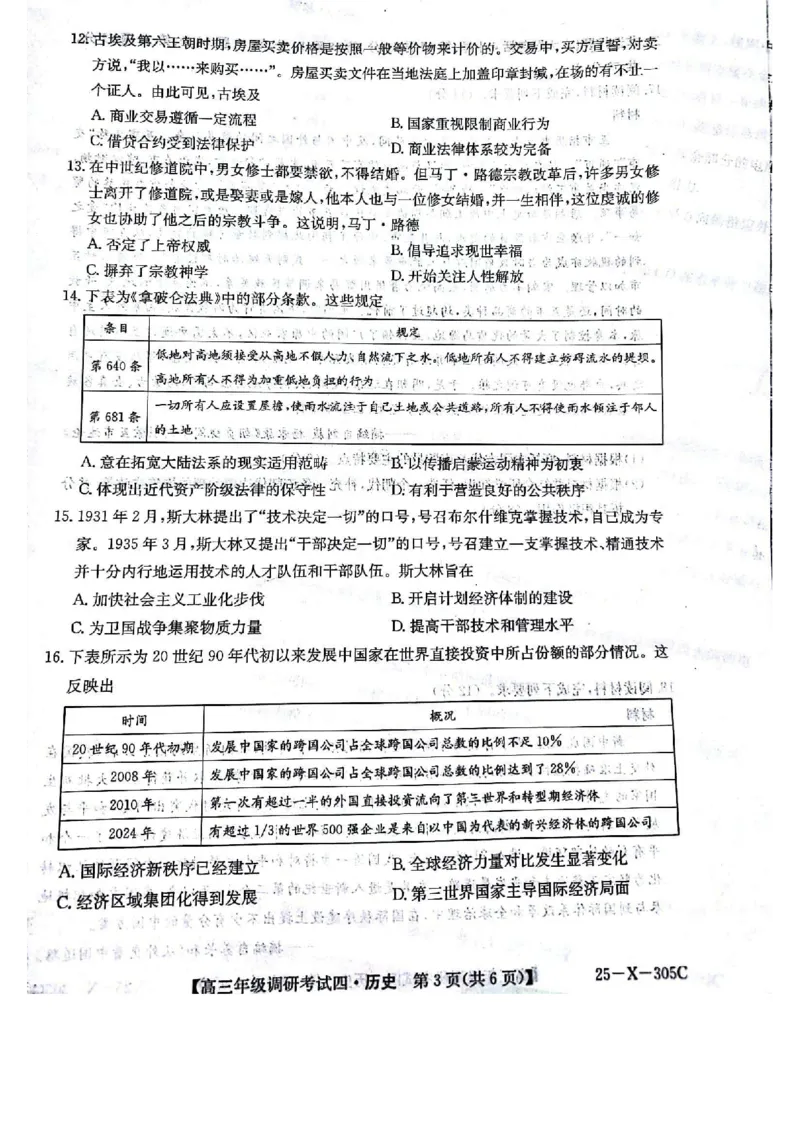 12. 古埃及第六王朝时期,房屋买卖价格是按照一般等价物来计价的。交易中,买方宣誓,对卖
方说,“我以……来购买……”。房屋买卖文件在当地法庭上加盖印章封缄,在场的有不止一
个证人。由此可见,古埃及
A. 商业交易遵循一定流程 B. 国家重视限制商业行为
C. 借贷合约受到法律保护 D. 商业法律体系较为完备
13. 在中世纪修道院中,男女修士都要禁欲,不得结婚。但马丁·路德宗教改革后,许多男女修
士离开了修道院,或是娶妻或是嫁人,他本人也与一位修女结婚,并一生相伴,这位虔诚的修
女也协助了他之后的宗教斗争。这说明,马丁·路德
A. 否定了上帝权威 B. 倡导追求现世幸福
C. 摒弃了宗教神学 D. 开始关注人性解放
14. 下表为《拿破仑法典》中的部分条款。这些规定
条目 规定
第 640 条 低地对高地须接受从高地不假人力、自然流下之水。低地所有人不得建立妨碍流水的堤坝。
高地所有人不得为加重低地负担的行为
第 681 条 一切所有人应设置屋檐,使雨水流注于自己土地或公共道路,所有人不得使雨水倾注于邻人
的土地
A. 意在拓宽大陆法系的现实适用范畴 B. 以传播启蒙运动精神为初衷
C. 体现出近代资产阶级法律的保守性 D. 有利于营造良好的公共秩序
15. 1931 年 2 月,斯大林提出了“技术决定一切”的口号,号召布尔什维克掌握技术,自己成为专
家。1935 年 3 月,斯大林又提出“干部决定一切”的口号,号召建立一支掌握技术、精通技术
并十分内行地运用技术的人才队伍和干部队伍。斯大林旨在
A. 加快社会主义工业化步伐 B. 开启计划经济体制的建设
C. 为卫国战争集聚物质力量 D. 提高干部技术和管理水平
16. 下表所示为 20 世纪 90 年代初以来发展中国家在世界直接投资中所占份额的部分情况。这
反映出
时间 概况
20 世纪 90 年代初期 发展中国家的跨国公司占全球跨国公司总数的比例不足 10%
2008 年 发展中国家的跨国公司占全球跨国公司总数的比例达到了 28%
2010 年 第一次有超过一半的外国直接投资流向了第三世界和转型期经济体
2024 年 有超过 1/3 的世界 500 强企业是来自以中国为代表的新兴经济体的跨国公司
A. 国际经济新秩序已经建立 B. 全球经济力量对比发生显著变化
C. 经济区域集团化得到发展 D. 第三世界国家主导国际经济局面
【高三年级调研考试四·历史 第 3 页(共 6 页)】 25-X-305C